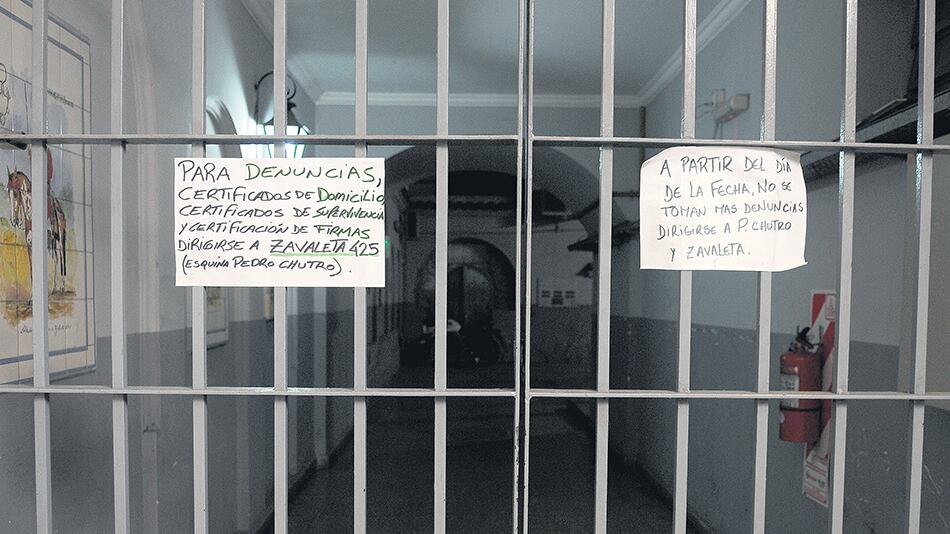 PARA DENUNCIAS,
CERTIFICADOS DE DOMICILIO,
CERTIFICADOS DE SUPERVIVENCIA
Y CERTIFICACIÓN DE FIRMAS
DIRIGIRSE A ZAVALETA 425
(ESQUINA PEDRO CHUTRO).
A PARTIR DEL DÍA
DE LA FECHA, NO SE
TOMAN MAS DENUNCIAS
DIRIGIRSE A P. CHUTRO
Y ZAVALETA.